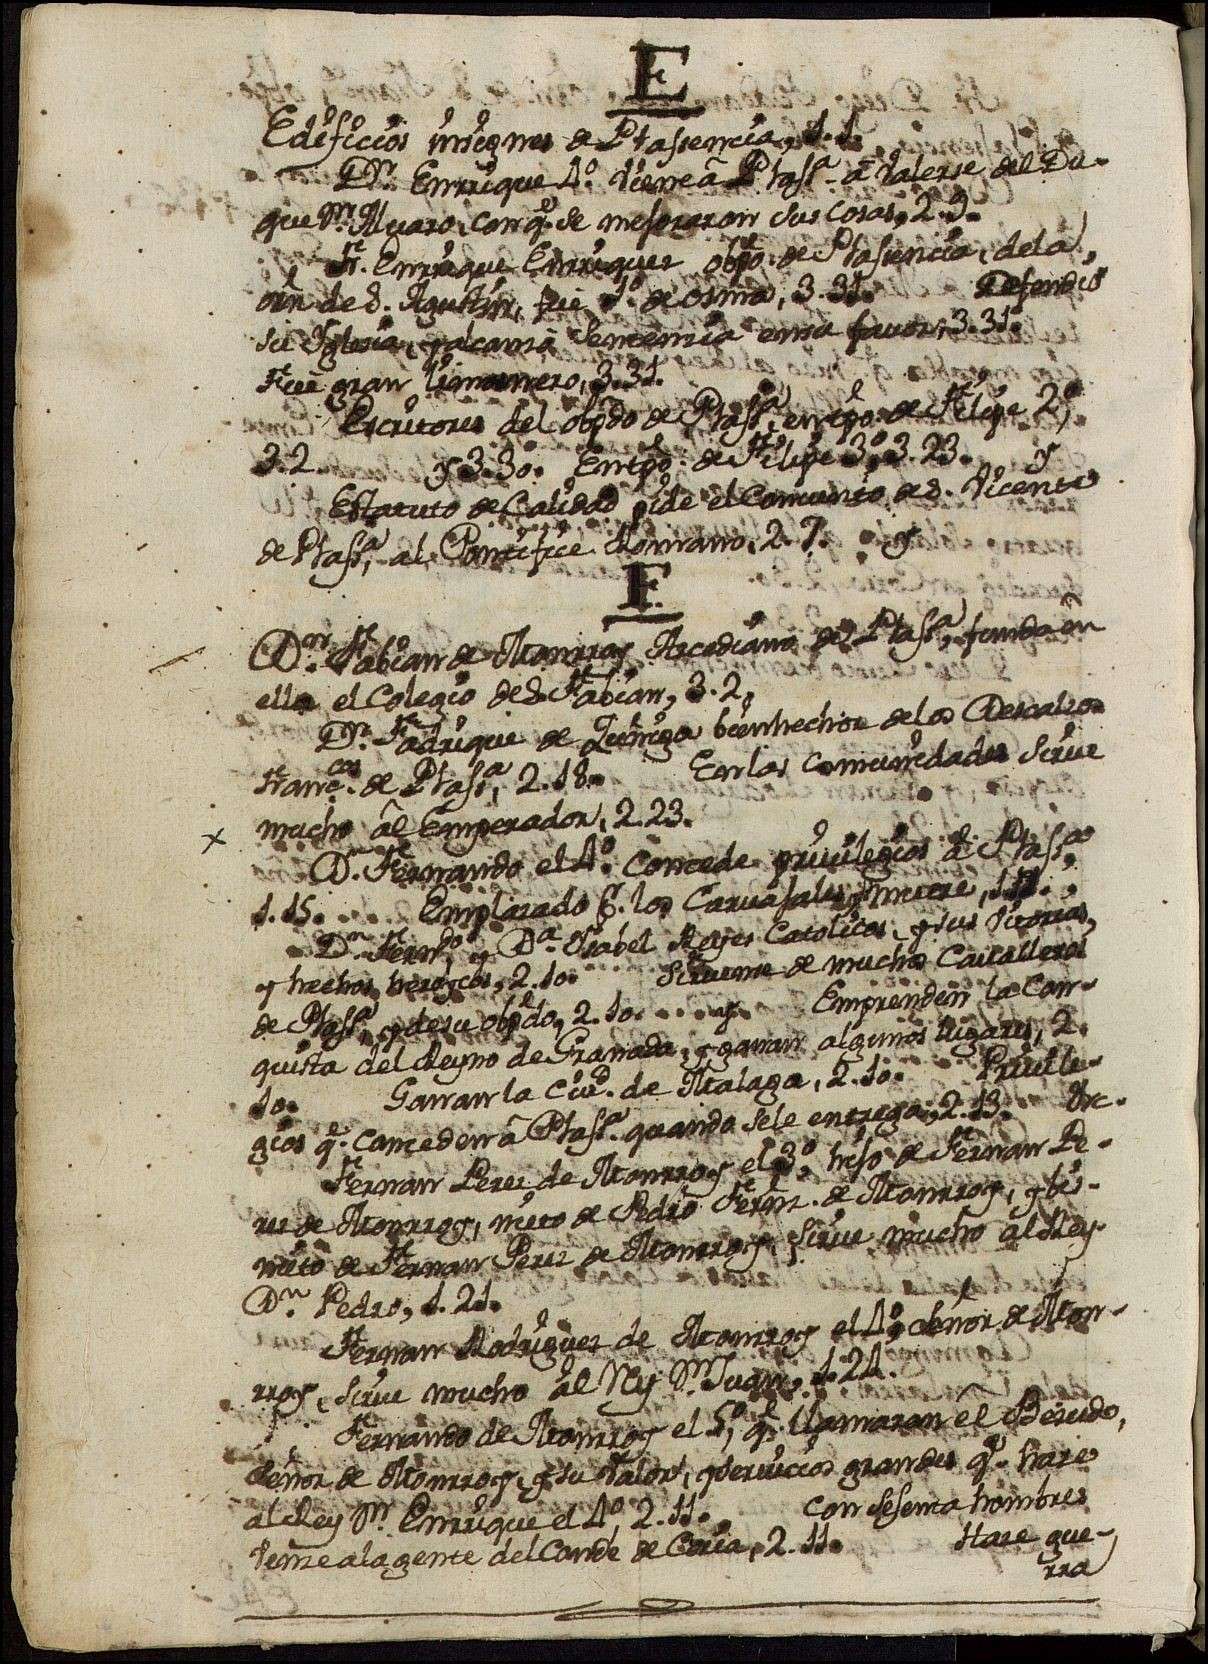 E
Edificios insignes de Plasencia, 1. 1.
Dn. Enrrique 4º. Viene â Plasa. a Valerse del Du-
que Dn. Alvaro, con q. se mejoraron sus cosas, 2. 9.
Fr. Enrrique Enrriquez obpo. de Plasencia, de la
orn de S. Agustin, fue 1º. de osma, 3. 31. Defendio
su Yglesia, y alcanzó Sentencia en su favor, 3. 31.
Fue gran limosnero, 3. 31.
Escritores del obpdo de Plasa, en tpo. de Felipe 2º,
3. 2. y 3. 30. En tpo. de Felipe 3º, 3. 23. y
Estatuto de Calidad pide el Convento de S. Vicente
de Plasa, al Pontifice Romano, 2. 7. y
F.
Dn. Fabian de Monrroy Arcediano de Plasa, funda en
ella el Colegio de S. Fabian, 3. 2.
Dn. Fadrique de Zuñiga bienhechor de los Descalzos
Francos. de Plasa, 2. 18. En las comunidades sirve
mucho âl Emperador, 2. 23.
x
Dn. Fernando el 4º. concede privilegios â Plasa,
1. 15. Emplazado P. los Carvajales, muere,
Dn. Ferndo, y Da. Ysabel Reyes Catolicos, y sus Vitorias,
y hechos heroycos, 2. 10. Sirvense de muchos Cavalleros
de Plasa, y de su obpdo, 2. 10. .... y. Emprenden la Con-
quista del Reyno de Granada, y ganan algunos lugares, 2.
10. Ganan la Ciud. de Malaga, 2. 10. Privile-
gios q. conceden â Plasa. quando se le entrega, 2. 13.
Fernan Perez de Monrroy el 3º, hijo de Fernan Pe-
rez de Monrroy, nieto de Pedro Fernz. de Monrroy, y bis-
nieto de Fernan Perez de Monrroy, sirve mucho al Rey
Dn. Pedro, 1. 21.
Fernan Rodriguez de Monrroy el 4º, señor de Mon-
rroy, sirve mucho âl Rey Dn. Juan, 1. 24.
Fernando de Monrroy el 5º, q. llamaron el Bezudo,
señor de Monrroy, y su Valor, y servicios grandes q. hace
al Rey Dn. Enrrique el 4º, 2. 11. con sesenta hombres
Venze a la gente del Conde de Coria, 2. 11. Haze gue-
rra